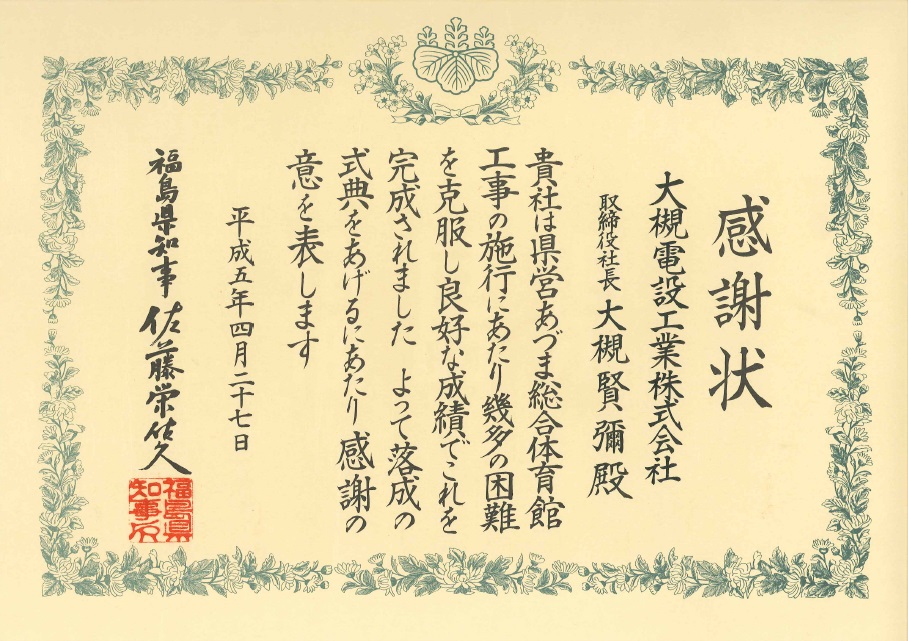 感謝状
大槻電設工業株式会社
取締役社長 大槻賢彌殿
貴社は県営あづま総合体育館
工事の施行にあたり幾多の困難
を克服し良好な成績でこれを
完成されました よって落成の
式典をあげるにあたり感謝の
意を表します
平成五年四月二十七日
福島県知事 佐藤栄佐久
福島県
知事之印